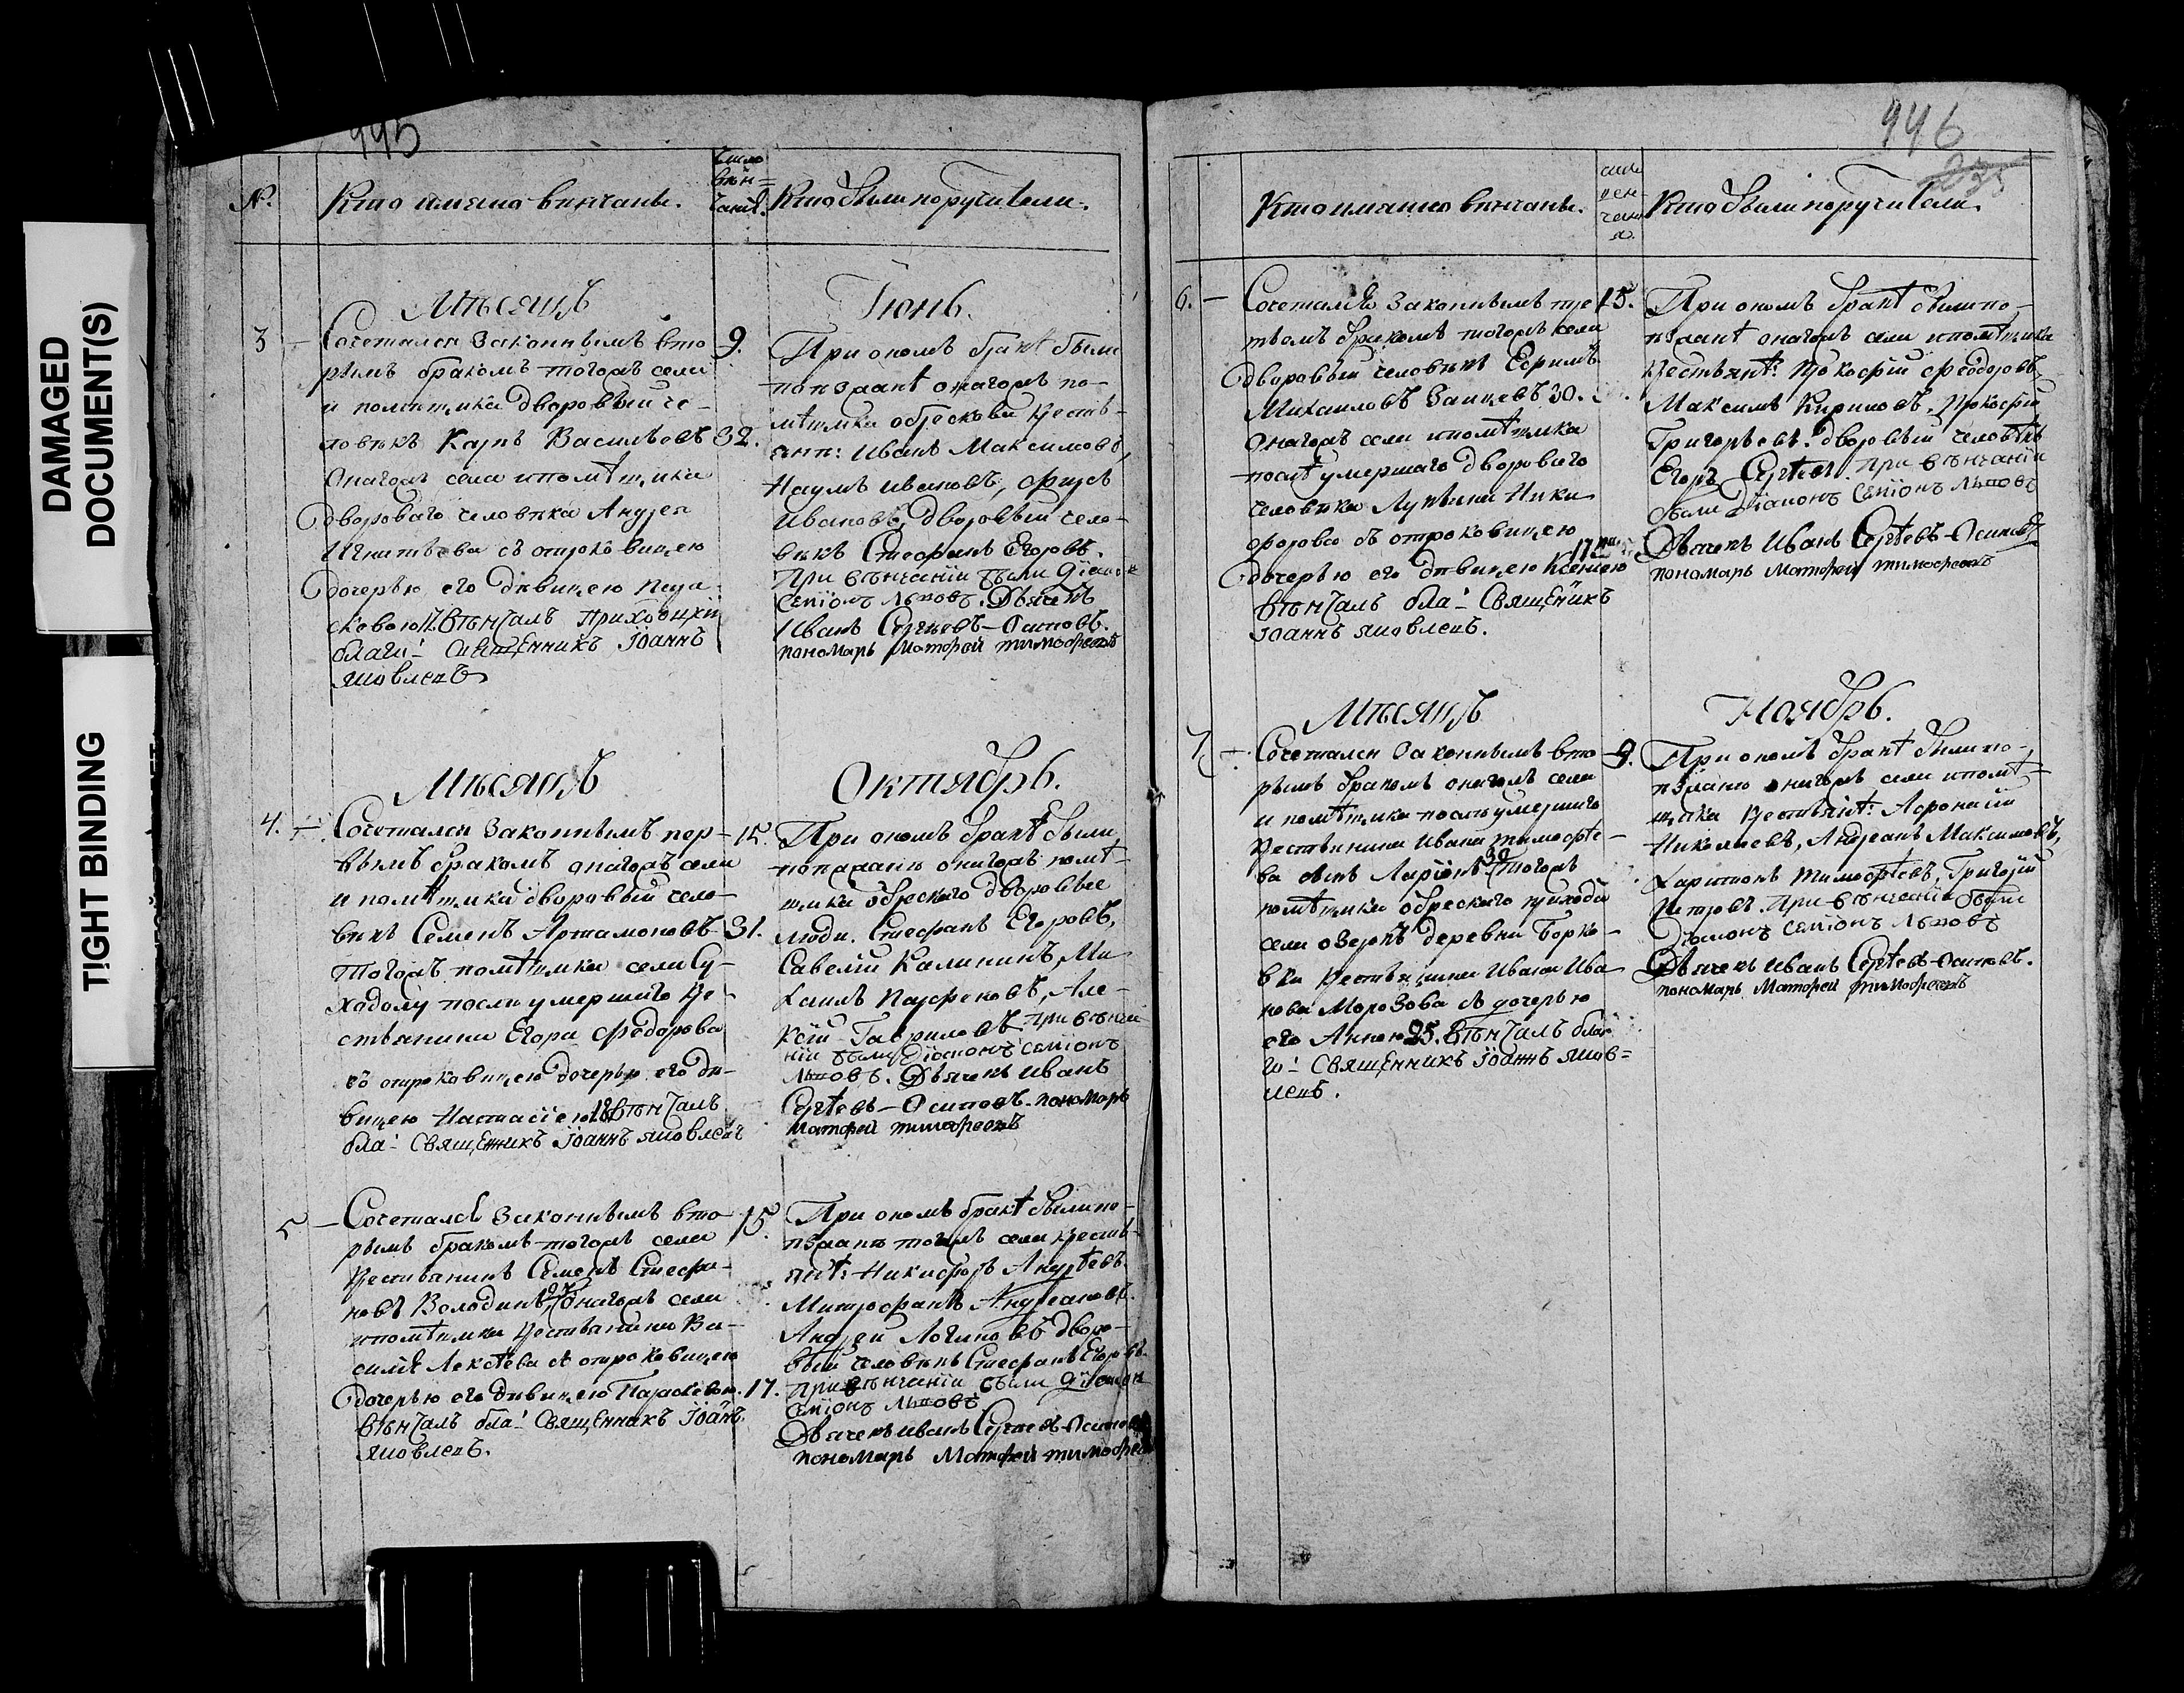 DAMAGED
DOCUMENT(S)
TIGHT BINDING
995
№.
Кто имяно венчаны.
Число
вѣн-
чанiя.
Кто были поручители.
Мѣсяцъ
Iюнь.
3
Сочетался законнымъ вто
рымъ бракомъ тогожъ села
и помѣщика дворовый че-
ловѣкъ Карпъ Васильевъ 32.
онагожъ села и помѣщика
двороваго человѣка Андрея
Игнатьева съ отроковицею
дочерью его дѣвицею Пара
скевою Вѣнчалъ приходцкiй
благо- Священникъ Iоаннъ
Яковлевъ
9.
При ономъ бракѣ были
онагожъ по-
мѣщика обрескова кресть-
яни: Иванъ Максимовъ,
Наумъ Ивановъ, Фролъ
Ивановъ, дворовый чело-
вѣкъ Стефанъ Егоровъ.
При вѣнчанiи были Дiаконъ
Семiонъ Львовъ. Дьячекъ
Иванъ Сергѣевъ-Осиповъ.
пономарь Матфей тимофеевъ
Мѣсяцъ
Октябрь.
4.
Сочетался законнымъ пер-
вымъ бракомъ онагожъ села
и помѣщика дворовый чело-
вѣкъ Семенъ Артамоновъ 31.
тогожъ помѣщика села Су-
ходолу послѣ умершаго кре-
стьянина Егора Федорова
съ отроковицею дочерью его дѣ-
вицею Настасiею 18 вѣнчалъ
бла- Священникъ Iоаннъ Яковлевъ
15.
При ономъ бракѣ были
онагожъ помѣ-
щика обрескаго дворовые
люди. Стефанъ Егоровъ,
Савелiй Калининъ, Ми
хаилъ Парфеновъ, Але-
ксѣй Гавриловъ при вѣнча
нiи были Дiаконъ Семiонъ
Львовъ. Дьячекъ Иванъ
Сергѣевъ-Осиповъ. пономарь
Матфей тимофеевъ
5
Сочетался законнымъ вто
рымъ бракомъ тогожъ села
крестьянинъ Семенъ Стефа-
новъ Володинъ, онагожъ села
и помѣщика крестьянина Ва-
силiя Алексѣева съ отроковицею
дочерью его дѣвицею Параскевою. 17.
вѣнчалъ бла- Священникъ Iоаннъ
Яковлевъ.
15.
При ономъ бракѣ были по-
тогожъ села кресть-
янѣ: Никифоръ Андрѣевъ
Митрофанъ Андреановъ.
Андрей Логиновъ дворо-
вый человѣкъ Стефанъ Егоровъ.
При вѣнчанiи были Дiаконъ
Семiонъ Львовъ
Дьячекъ Иванъ Сергѣевъ-Осиповъ
пономарь Матфей тимофеевъ
996
235
Кто имяно вѣнчаны.
число
вен-
чани
я.
Кто были поручители.
6.
Сочетался законнымъ тре
тьимъ бракомъ тогожъ села
дворовый человѣкъ Ефимъ
Михаиловъ Заицевъ 30.
онагожъ села и помѣщика
послѣ умершаго двороваго
человѣка Лукьяна Ники
форова съ отроковицею
дочерью его дѣвицею Ксенiею 17
вѣнчалъ бла- Священикъ
Iоаннъ Яковлевъ.
15.
При ономъ бракѣ были по-
онагожъ села и помѣщика
крестьянѣ: Прокофiй Феодоровъ
Максимъ Кириловъ. Прокофiй
Григорьевъ. дворовый человѣкъ
Егоръ Сергѣевъ. При вѣнчанiи
были Дiаконъ Семiонъ Львовъ
Дьячекъ Иванъ Сергѣевъ-Осиповъ
пономарь Матфей тимофеевъ
Мѣсяцъ
Ноябрь.
7.
Сочетался законнымъ вто
рымъ бракомъ онагожъ села
и помѣщика послѣ умершаго
крестьянина Ивана тимофѣе-
ва сынъ Ларiонъ 30 тогожъ
помѣщика обрескаго прихода
села озерокъ деревни Борко-
вки крестьянина Ивана Ива
нова Морозова съ дочерью
его Анною 25. вѣнчалъ бла
го- Священникъ Iоаннъ Яков-
левъ.
9.
При ономъ бракѣ были по-
онагожъ села и помѣ-
щика крестьянѣ: Афонасiй
Николаевъ, Андреанъ Максимовъ,
Харитонъ Тимофѣевъ, Григорiй
Петровъ. при вѣнчанiи были
Дiаконъ Семiонъ Львовъ
Дьячекъ Иванъ Сергѣевъ-Осиповъ.
пономарь Матфей тимофеевъ